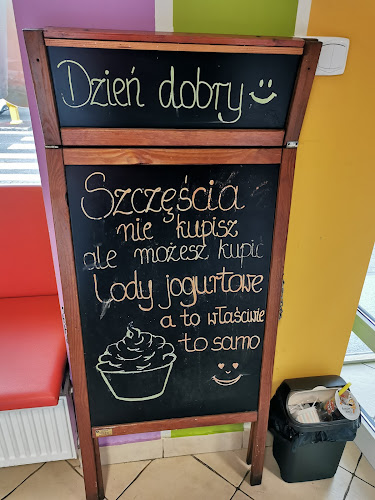 Dzień dobry
Szczęścia
nie kupisz
ale możesz kupić
lody jogurtowe
a to właściwie
to samo